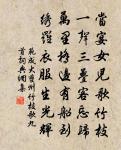 當宴女兒歌竹枝
一聲三疊客忘歸
萬里橋邊有船到
綺羅衣服生光輝
范成大夔州竹枝歌九
首詞與佃集